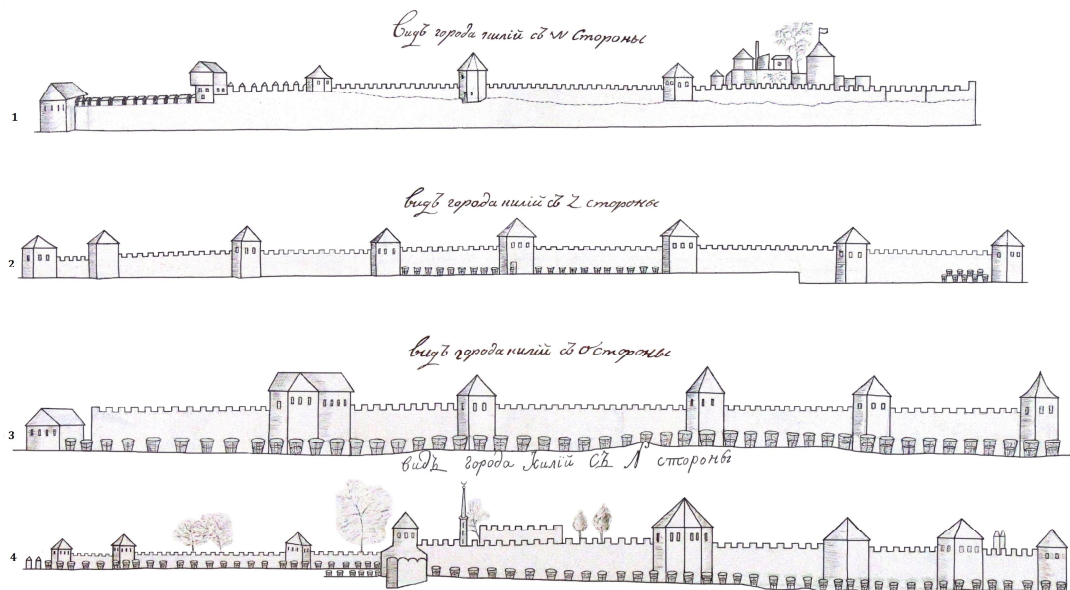 Видъ города килій съ W Стороны
1
видъ города килій съ Z стороны
2
видъ города килій съ O стороны
3
видъ города Килій Съ N стороны
4